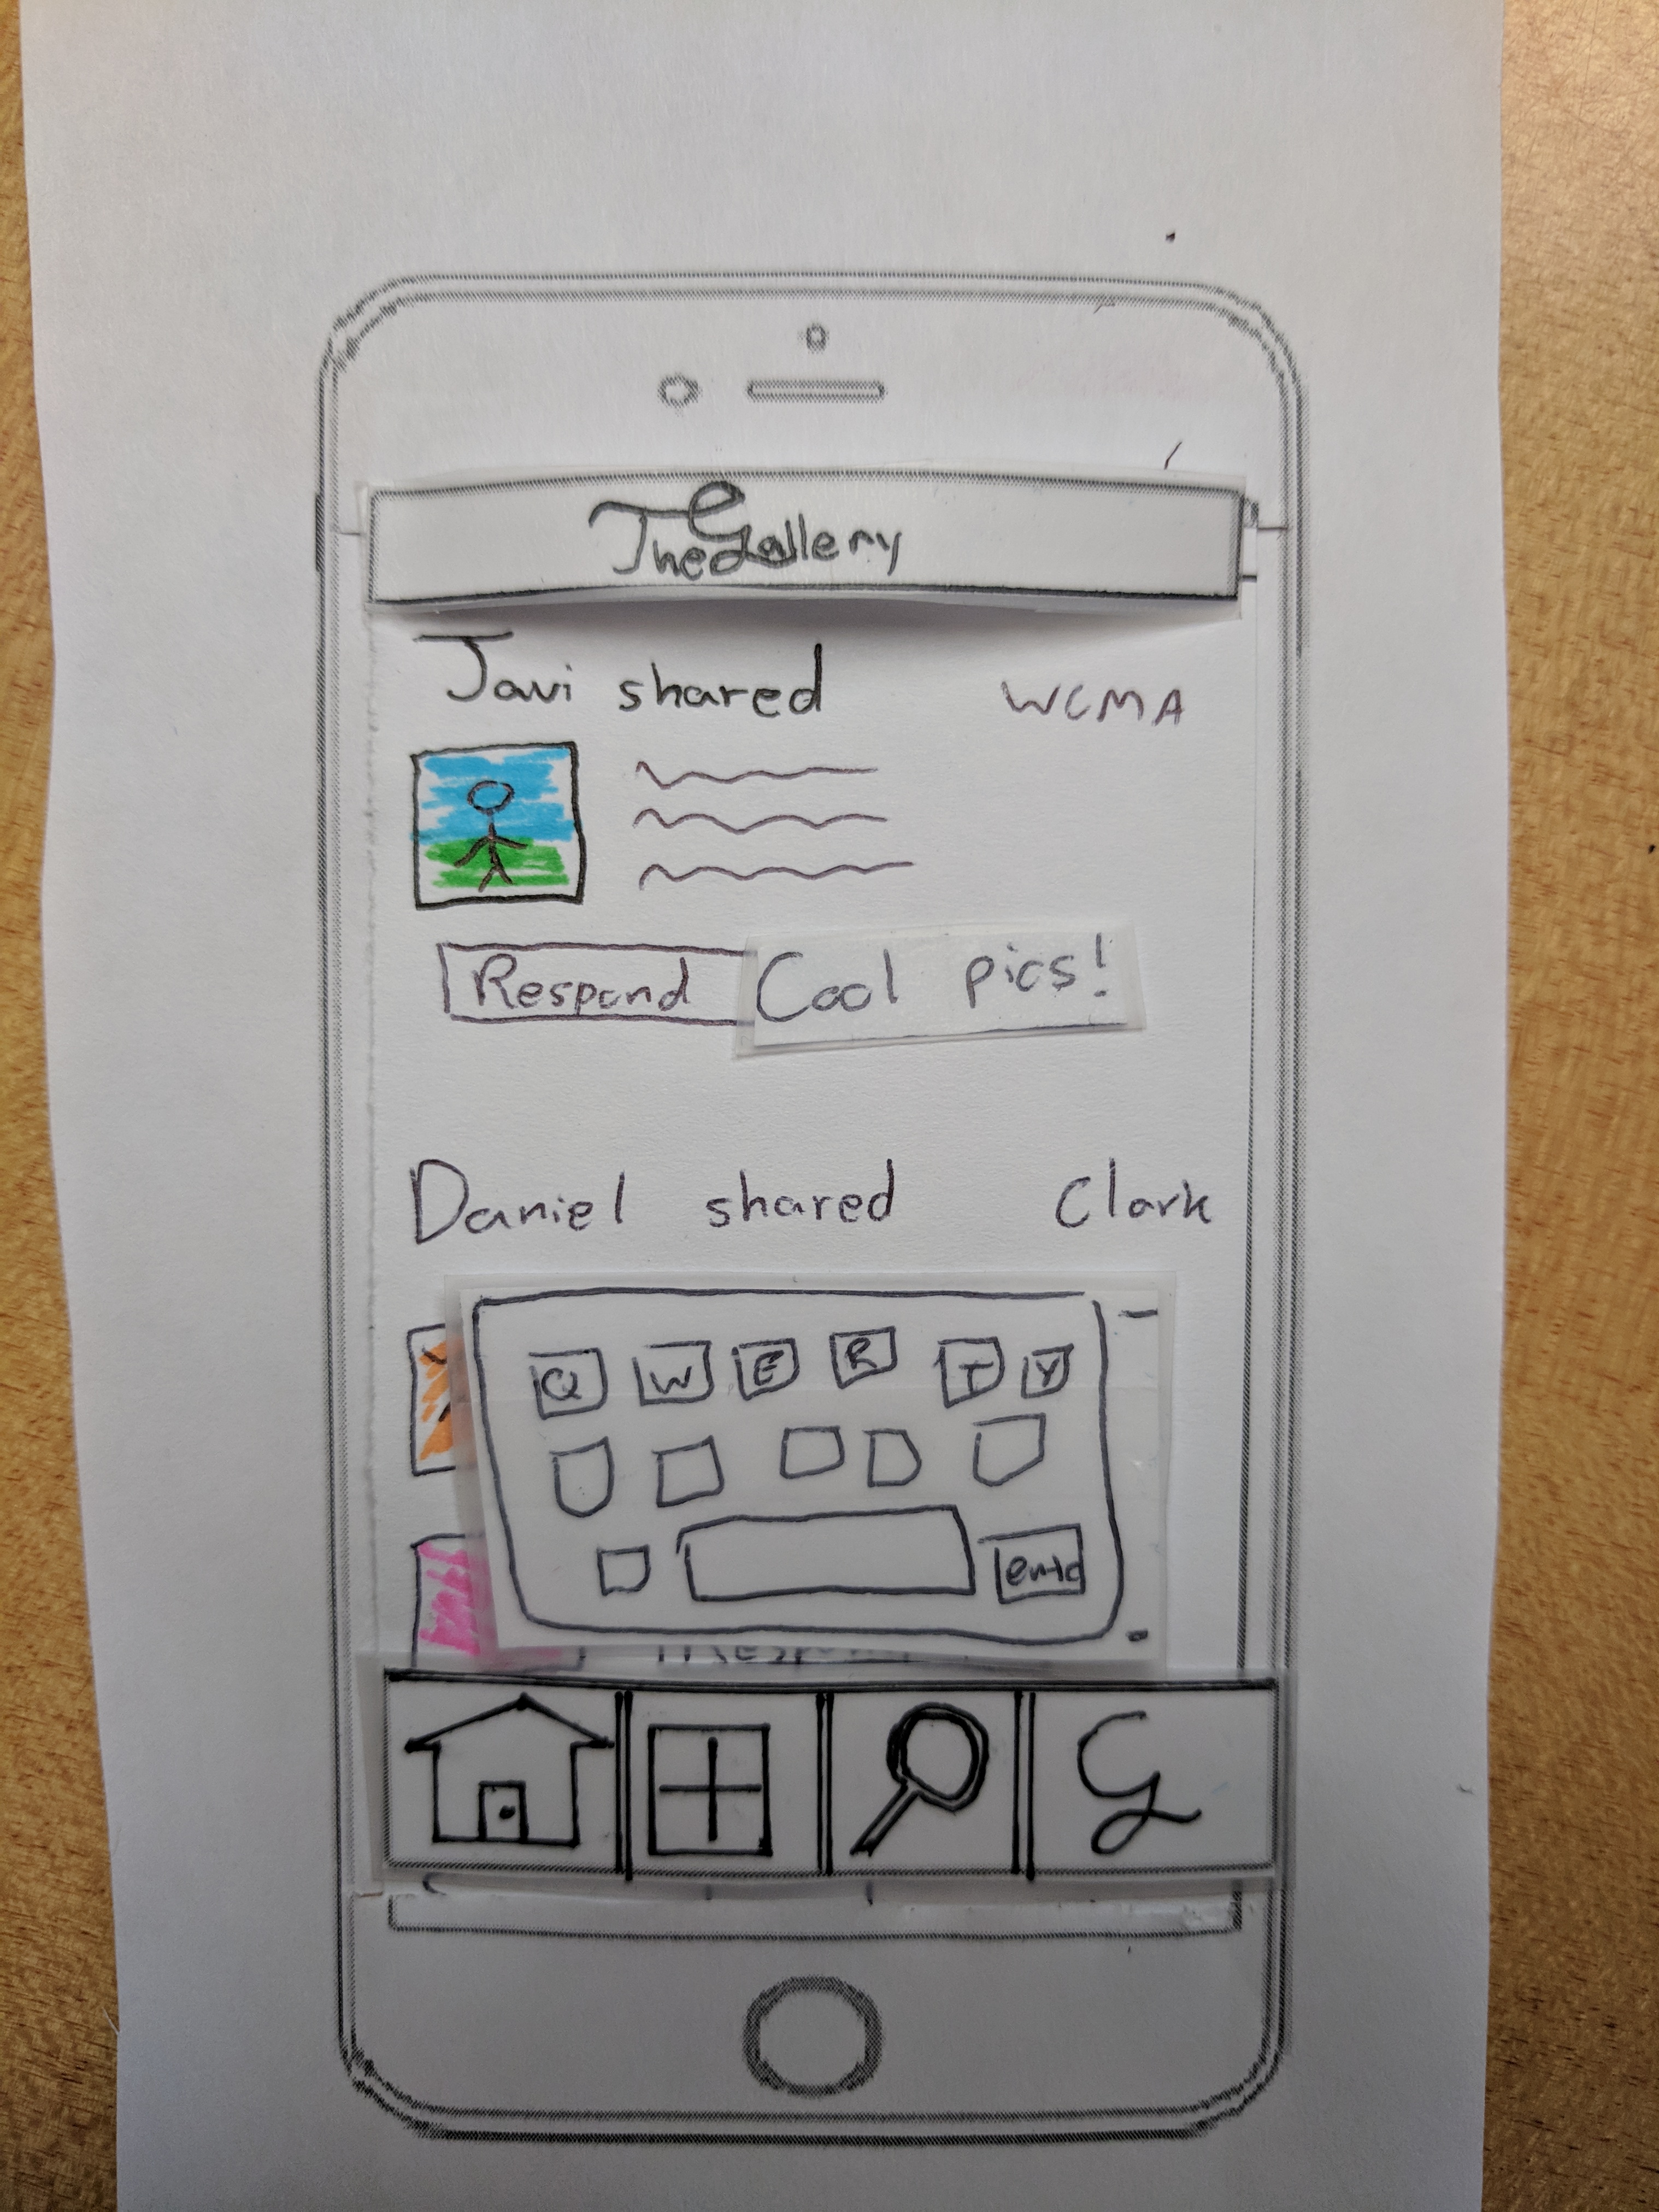 The Gallery
Javi shared WCMA
Respond Cool pics!
Daniel shared Clark
Q W E R T Y
G